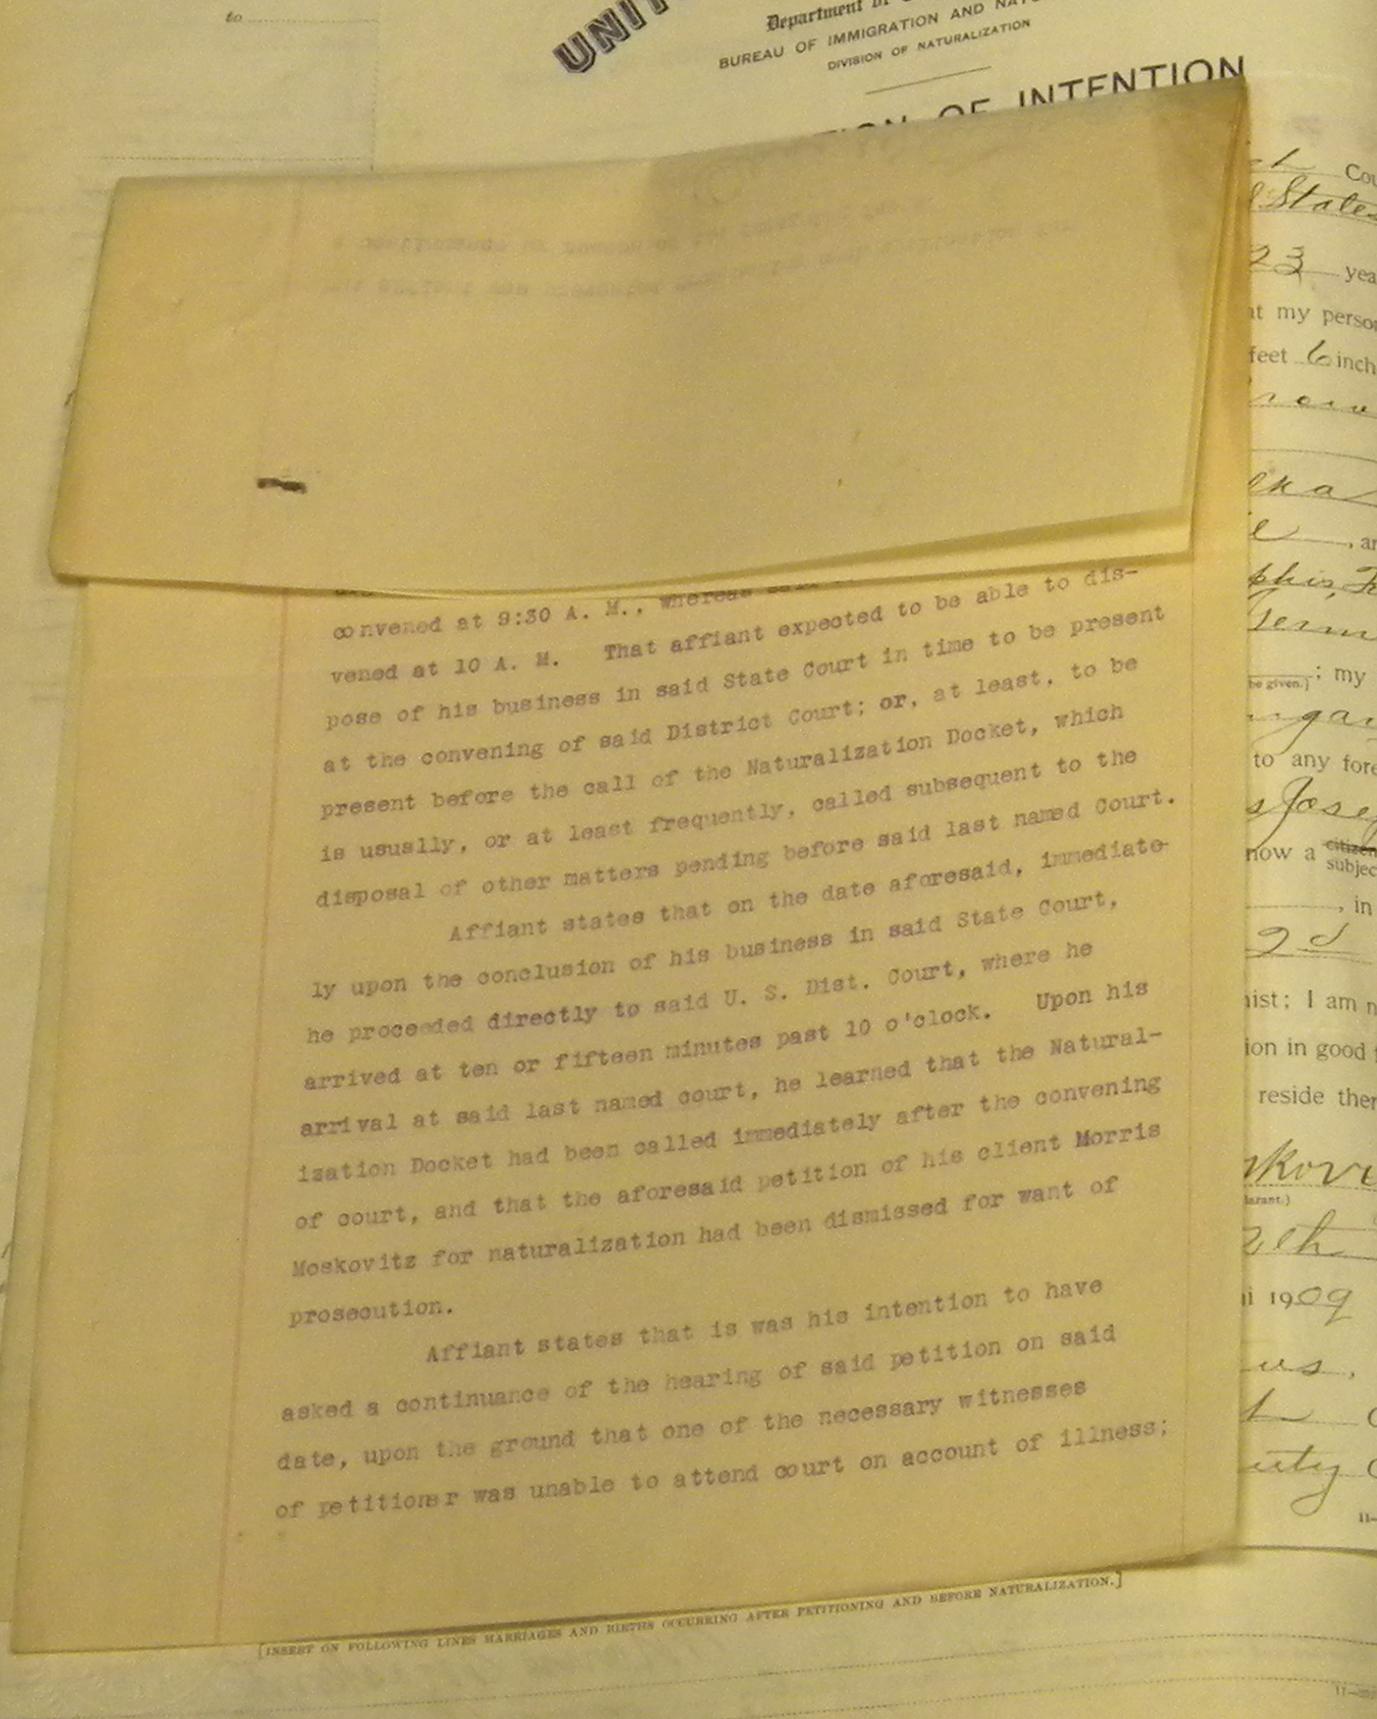 to
UNIT
Department of
BUREAU OF IMMIGRATION AND NAT
DIVISION OF NATURALIZATION
TION OF INTENTION
convened at 9:30 A. M., whereas said
vened at 10 A. M. That affiant expected to be able to dis-
pose of his business in said State Court in time to be present
at the convening of said District Court; or, at least, to be
present before the call of the Naturalization Docket, which
is usually, or at least frequently, called subsequent to the
disposal of other matters pending before said last named Court.
Affiant states that on the date aforesaid, immediate-
ly upon the conclusion of his business in said State Court,
he proceeded directly to said U. S. Dist. Court, where he
arrived at ten or fifteen minutes past 10 o'clock. Upon his
arrival at said last named court, he learned that the Natural-
ization Docket had been called immediately after the convening
of court, and that the aforesaid petition of his client Morris
Moskovitz for naturalization had been dismissed for want of
prosecution.
Affiant states that is was his intention to have
asked a continuance of the hearing of said petition on said
date, upon the ground that one of the necessary witnesses
of petitioner was unable to attend court on account of illness;
[INSERT ON FOLLOWING LINES MARRIAGES AND BIRTHS OCCURRING AFTER PETITIONING AND BEFORE NATURALIZATION.]
Cou
States
23 yea
at my perso
feet 6 inch
be given.) ; my
to any fore
s Jose
now a citizen
subjec
, in
2d
nist; I am n
ion in good
reside ther
skovi
larant.)
1909
us,
uty
11-